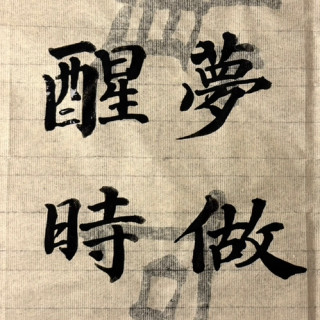 夢做
醒時